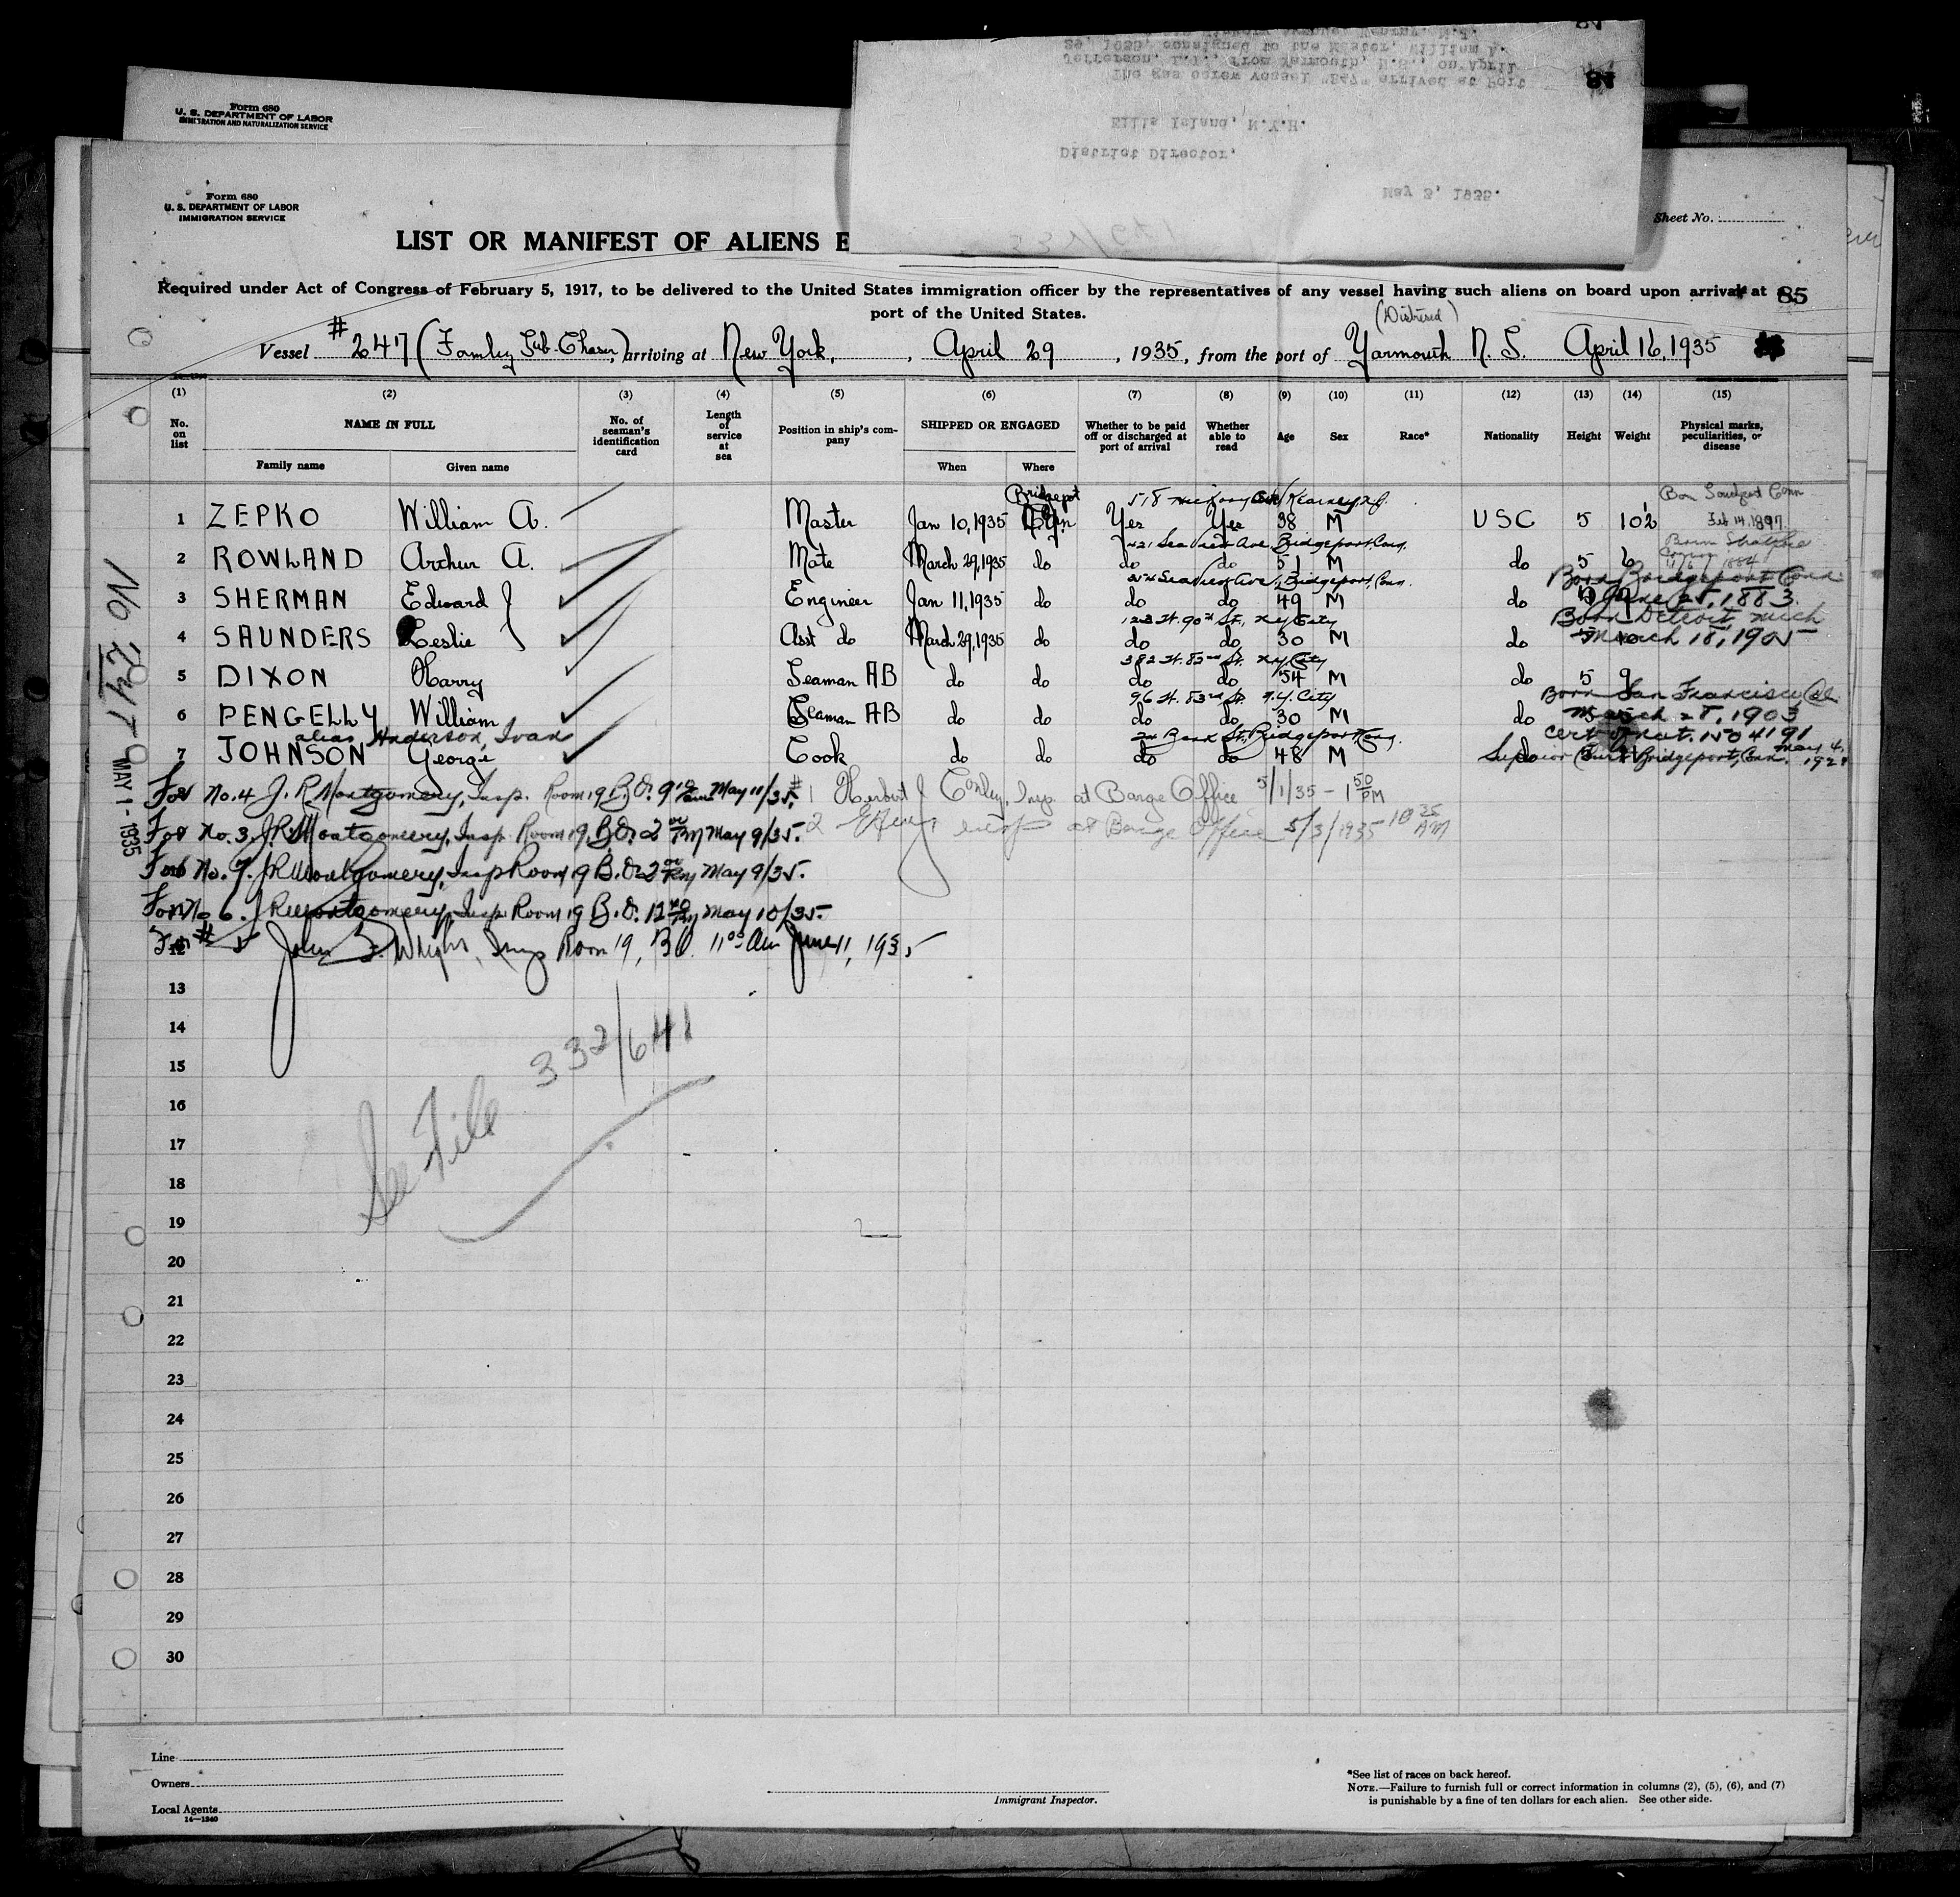 87
29, 1935, consigned to the Master, William A.
Jefferson, L.I., from Yarmouth, N.S., on April
The gas screw vessel "247" arrived at Port
Ellis Island, N.Y.H.
District Director,
May 3, 1935.
Form 680
U. S. DEPARTMENT OF LABOR
IMMIGRATION AND NATURALIZATION SERVICE
Form 680
U. S. DEPARTMENT OF LABOR
IMMIGRATION SERVICE
Sheet No.
LIST OR MANIFEST OF ALIENS E
Required under Act of Congress of February 5, 1917, to be delivered to the United States immigration officer by the representatives of any vessel having such aliens on board upon arrival at a
85
port of the United States.
(Distresed)
Vessel #247 (Formley Sub-Chaser) arriving at New York, , April 29 , 1935, from the port of Yarmouth N. S. April 16, 1935
(1) (2) (3) (4) (5) (6) (7) (8) (9) (10) (11) (12) (13) (14) (15)
No. on list NAME IN FULL No. of seaman's identification card Length of service at sea Position in ship's company SHIPPED OR ENGAGED Whether to be paid off or discharged at port of arrival Whether able to read Age Sex Race* Nationality Height Weight Physical marks, peculiarities, or disease
Family name Given name When Where
Bridgepot 518 Ave Kearney N.J. Conn
1 ZEPKO William A. Master Jan 10, 1935 Yes Yes 38 M USC 5 10½ Feb 14, 1897
421 Seaview Ave Bridgeport, Conn. Born
2 ROWLAND Arthur A. Mate March 29, 1935 do do do 51 M do 5 6
Seaview Ave., Bridgeport, Conn. Born Bridgeport Conn
3 SHERMAN Edward J Engineer Jan 11, 1935 do do do 49 M do 5 9 June 25, 1883.
123 W. 90th St., N.Y. City Born Detroit Mich
4 SAUNDERS Leslie J Asst do March 29, 1935 do do do 30 M do 5 10 March 18, 1905
382 W. 82nd St. N.Y. City
5 DIXON Harry Seaman AB do do do do 54 M do 5 9
96 W. 83rd St. N.Y. City Born San Francisco, Cal.
6 PENGELLY William Seaman AB do do do do 30 M do March 28, 1903
alias Anderson, Ivan Bank St., Bridgeport, Conn. Cert of nat. No 4191
7 JOHNSON George Cook do do do do 48 M do Superior Court Bridgeport, Conn. May 4,
For No. 4 J. R. Montgomery, Insp. Room 19 B.O. May 11/35. #1 Herbert J Conley, Insp. at Barge Office 5/1/35 - 1 50 PM
For No. 3, J. R. Montgomery, Insp. Room 19 B.O. 2 00 PM May 9/35. 2 Insp at Barge Office 5/3/1935 10 35 AM
For No. 7. J R Montgomery, Insp Room 19 B.O. 2 00 PM May 9/35.
For No 6. J R Montgomery Insp. Room 19 B.O. 12 May 10/35
For # 5 John J. Wright, Insp Room 19, BO. 11 00 AM June 11, 1935
12
13
14
15
16
17
18
19
20
21
22
23
24
25
26
27
28
29
30
See File 332/641
MAY 1 - 1935
Line
Owners
Local Agents
14—1240
Immigrant Inspector.
*See list of races on back hereof.
NOTE.—Failure to furnish full or correct information in columns (2), (5), (6), and (7)
is punishable by a fine of ten dollars for each alien. See other side.